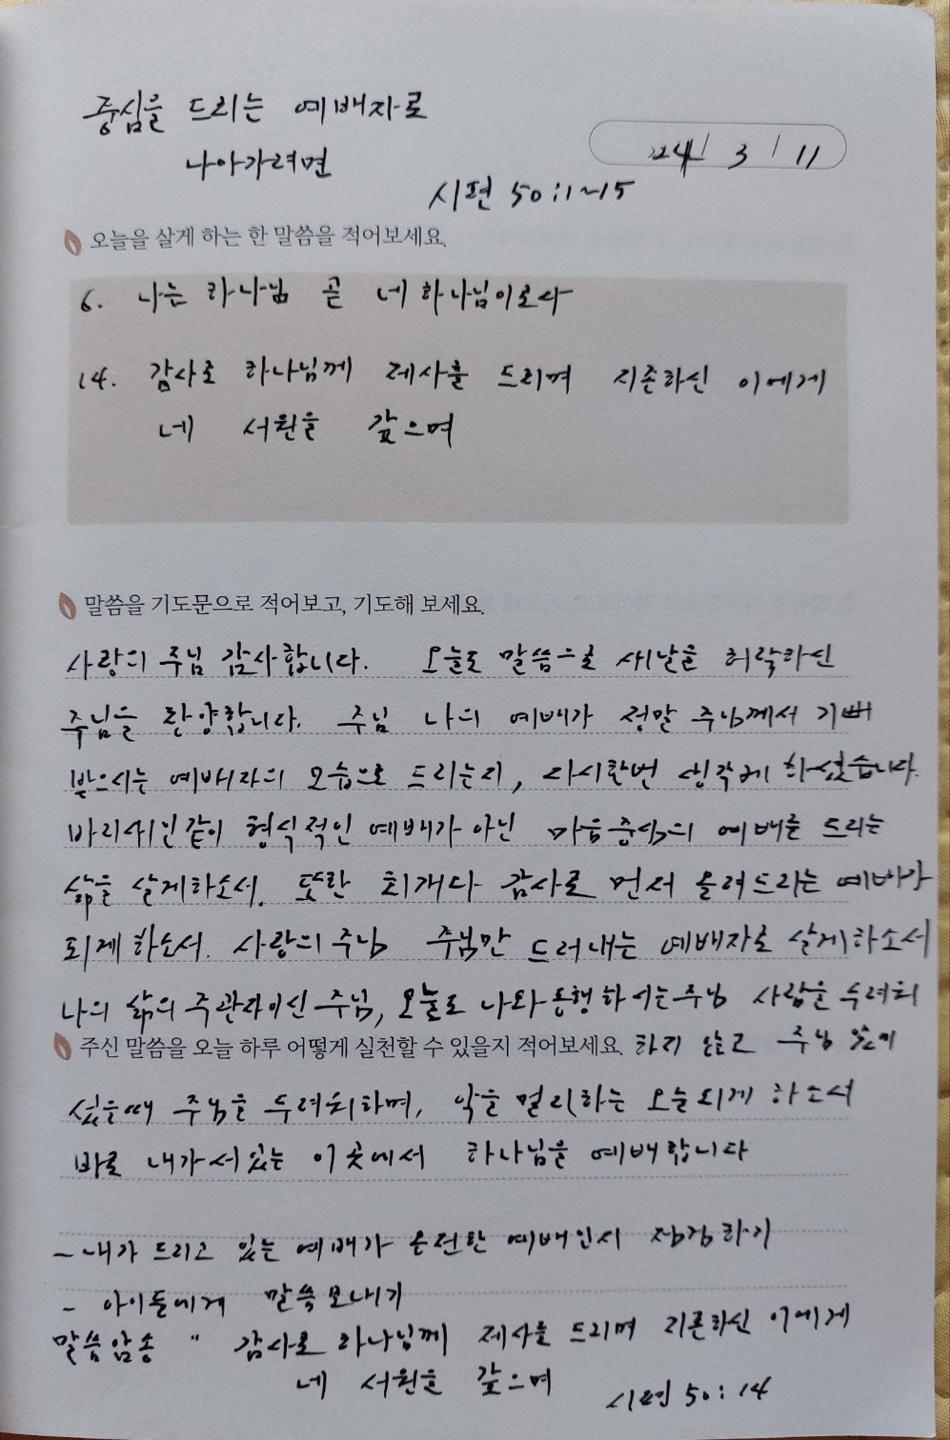 중심을 드리는 예배자로
나아가려면
24 / 3 / 11
시편 50:1~15
오늘을 살게 하는 한 말씀을 적어보세요.
6. 나는 하나님 곧 네 하나님이로다
14. 감사로 하나님께 제사를 드리며 지존하신 이에게
네 서원을 갚으며
말씀을 기도문으로 적어보고, 기도해 보세요.
사랑의 주님 감사합니다. 오늘도 말씀으로 새날을 허락하신
주님을 찬양합니다. 주님 나의 예배가 정말 주님께서 기뻐
받으시는 예배자의 모습으로 드리는지, 다시한번 생각게 하셨습니다.
바리새인같이 형식적인 예배가 아닌 마음중심의 예배를 드리는
삶을 살게하소서. 또한 회개다 감사로 먼저 올려드리는 예배가
되게 하소서. 사랑의 주님 주님만 드러내는 예배자로 살게하소서
나의 삶의 주관자이신 주님, 오늘도 나와 동행하시는 주님 사람을 두려워
주신 말씀을 오늘 하루 어떻게 실천할 수 있을지 적어보세요. 하지 않고 주님 앞에
섰을때 주님을 두려워하며, 악을 멀리하는 오늘 되게 하소서
바로 내가 서있는 이곳에서 하나님을 예배합니다
- 내가 드리고 있는 예배가 온전한 예배인지 점검하기
- 아이들에게 말씀 보내기
말씀암송 " 감사로 하나님께 제사를 드리며 지존하신 이에게
네 서원을 갚으며
시편 50:14